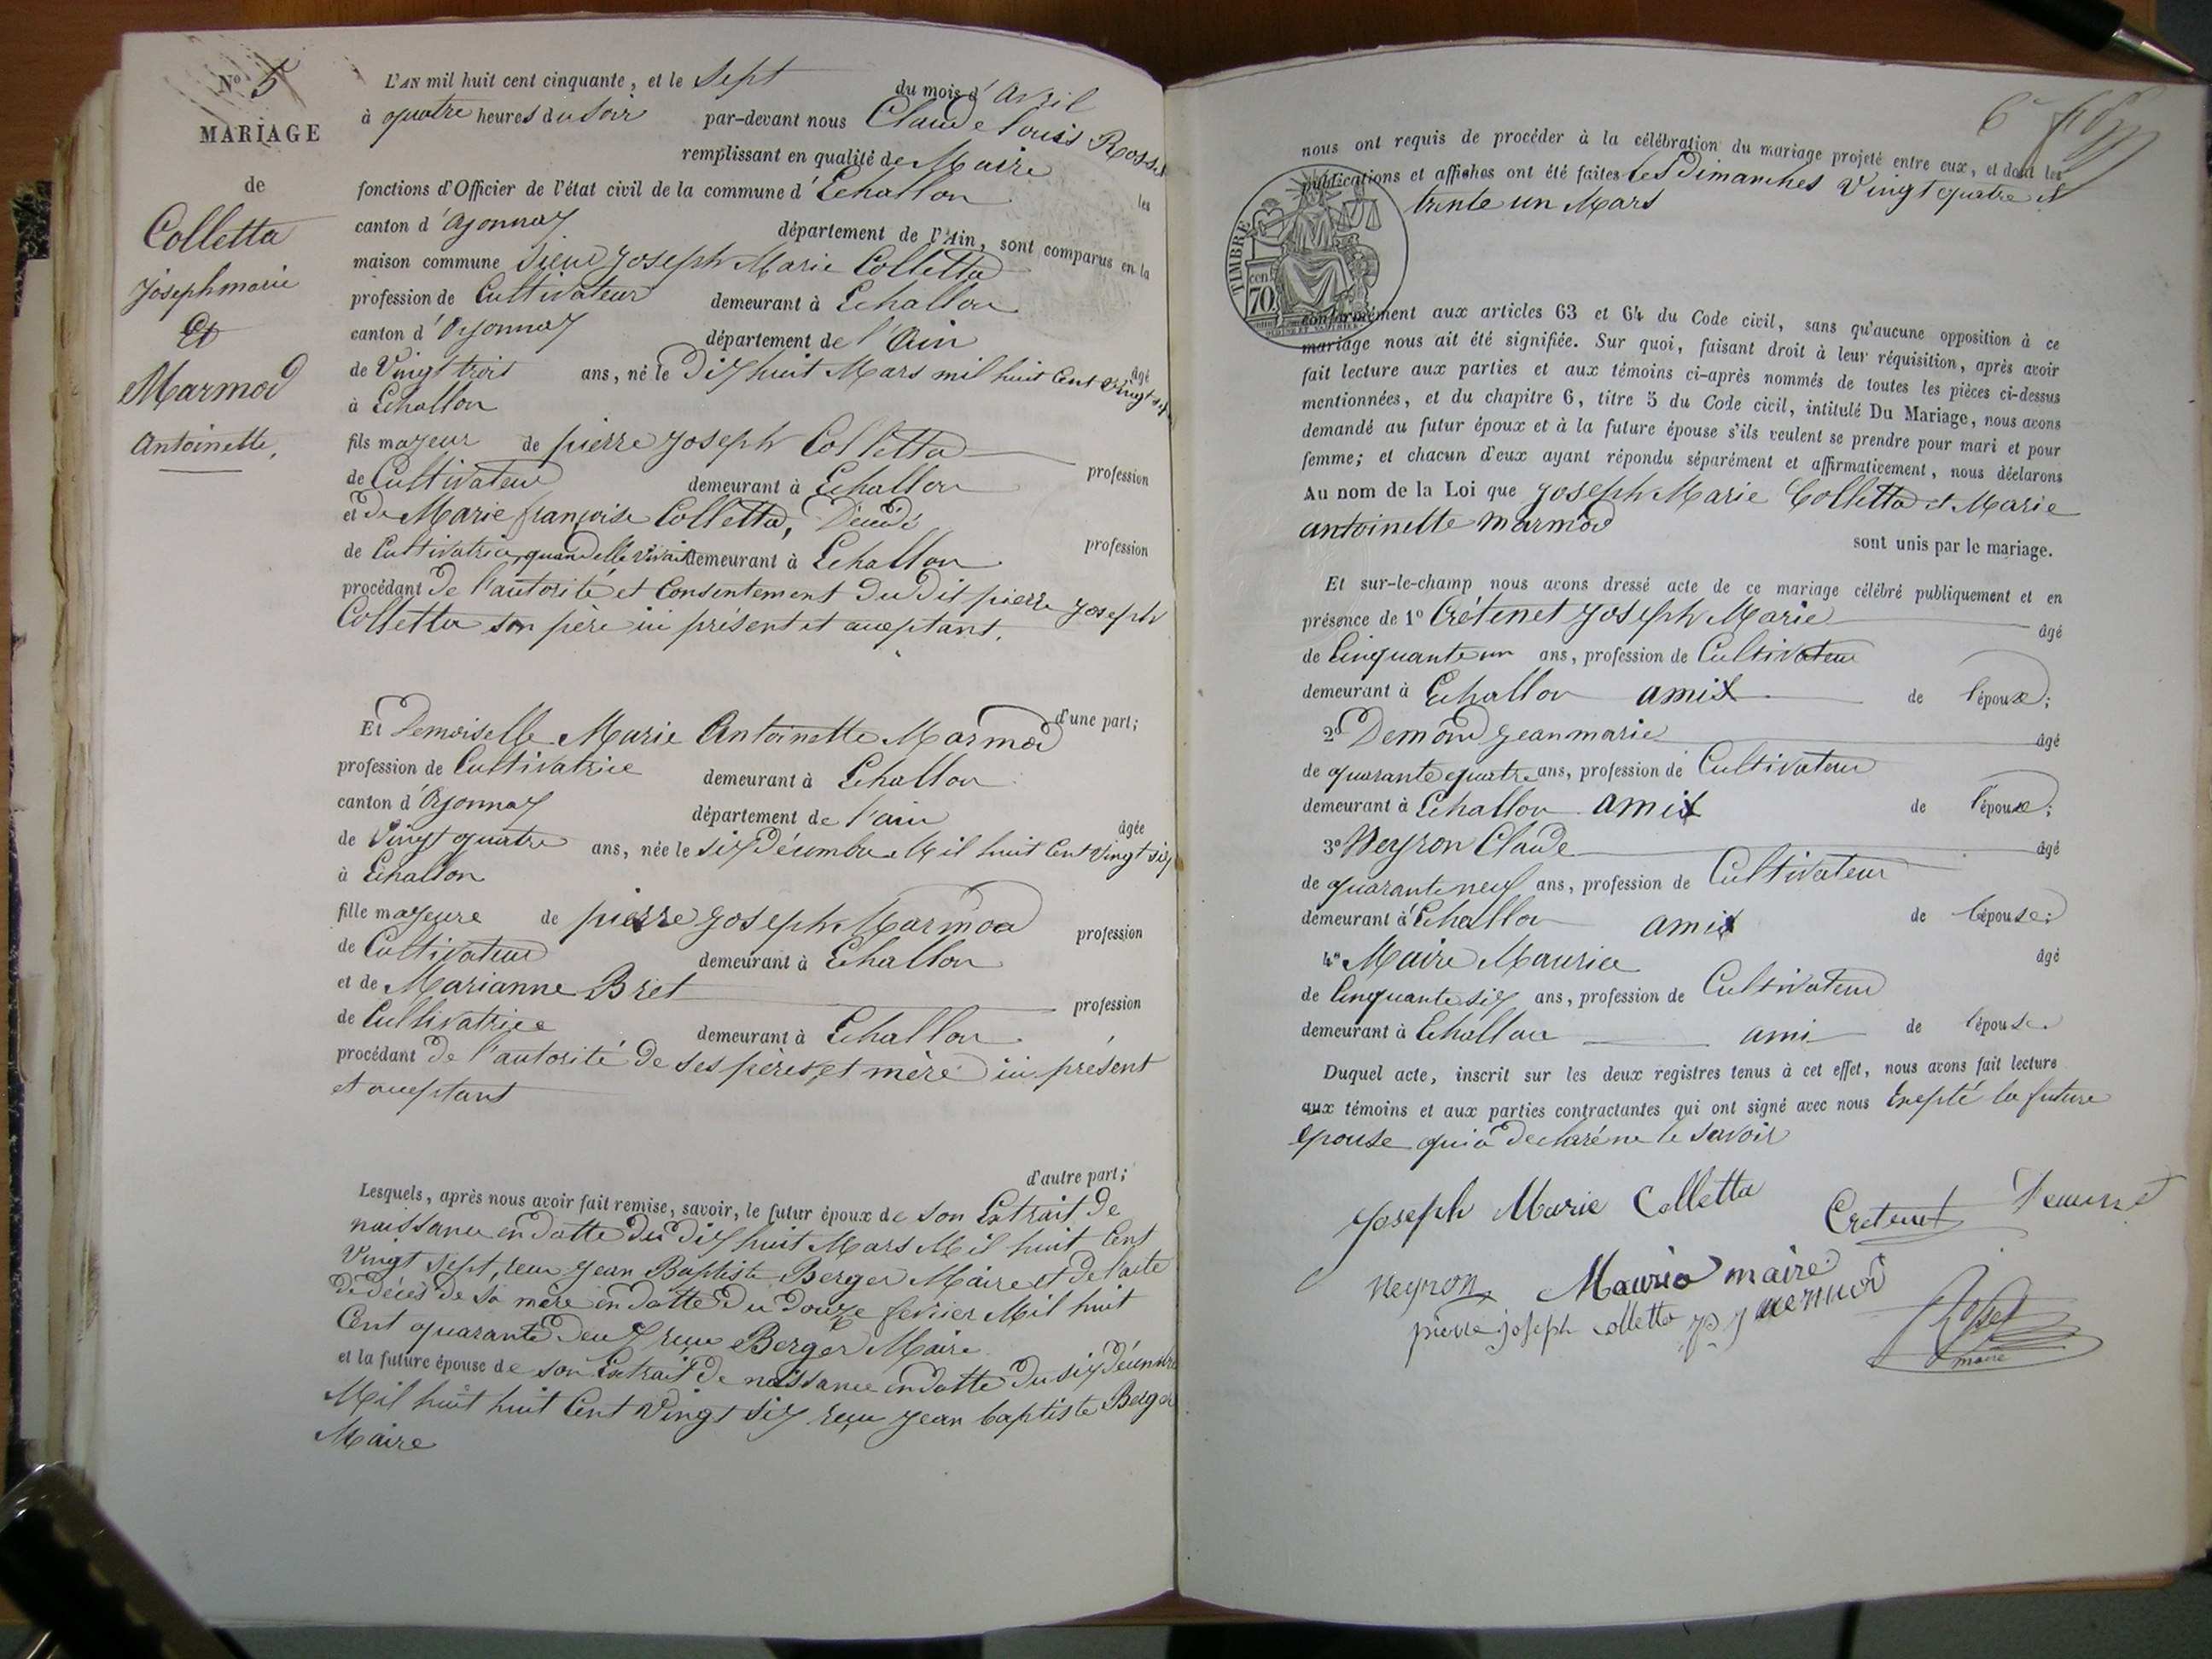 No 5
MARIAGE
de
Colletta
joseph marie
Et
Marmod
Antoinette,
L'AN mil huit cent cinquante, et le Sept du mois d'avril
à quatre heures du soir par-devant nous Claude Louis Rosset
remplissant en qualité de Maire les
fonctions d'Officier de l'état civil de la commune d'Echallon
canton d'Oyonnay département de l'Ain, sont comparus en la
maison commune Sieur Joseph Marie Colletta
profession de Cultivateur demeurant à Echallon
canton d'Oyonnay département de l'Ain âgé
de Vingt trois ans, né le Dix huit Mars mil huit Cent vingt
à Echallon
fils mayeur de pierre joseph Colletta profession
de Cultivateur demeurant à Echallon
et de Marie françoise Colletta, Décédé profession
de Cultivatrice, quand elle vivait demeurant à Echallon
procédant de l'autorité et Consentement du dit pierre joseph
Colletta son père ici présent et acceptant.
d'une part;
Et Demoiselle Marie Antoinette Marmod
profession de Cultivatrice demeurant à Echallon
canton d'Oyonnay département de l'ain âgée
de Vingt quatre ans, née le Six Décembre Mil huit Cent Vingt six
à Echallon
fille mayeure de pierre joseph Marmod profession
de Cultivateur demeurant à Echallon
et de Marianne Bret profession
de Cultivatrice demeurant à Echallon
procédant de l'autorité de ses pères et mère ici présent
et acceptant
d'autre part;
Lesquels, après nous avoir fait remise, savoir, le futur époux de son Extrait de
naissance en datte du dix huit Mars Mil huit Cent
Vingt sept, reçu Jean Baptiste Berger Maire et de l'acte
de décès de sa mère en datte du douze fevrier Mil huit
Cent quarante deux reçu Berger Maire
et la future épouse de son Extrait de naissance en datte du six Décembre
Mil huit huit Cent Vingt six reçu jean baptiste Berger
Maire
nous ont requis de procéder à la célébration du mariage projeté entre eux, et dont les
publications et affiches ont été faites les Dimanches Vingt quatre et
trente un Mars
TIMBRE
cent
70
conformément aux articles 63 et 64 du Code civil, sans qu'aucune opposition à ce
mariage nous ait été signifiée. Sur quoi, faisant droit à leur réquisition, après avoir
fait lecture aux parties et aux témoins ci-après nommés de toutes les pièces ci-dessus
mentionnées, et du chapitre 6, titre 5 du Code civil, intitulé Du Mariage, nous avons
demandé au futur époux et à la future épouse s'ils veulent se prendre pour mari et pour
femme; et chacun d'eux ayant répondu séparément et affirmativement, nous déclarons
Au nom de la Loi que Joseph Marie Colletta et Marie
antoinette marmod
sont unis par le mariage.
Et sur-le-champ nous avons dressé acte de ce mariage célébré publiquement et en
présence de 1o Crétenet Joseph Marie âgé
de Cinquante un ans, profession de Cultivateur
demeurant à Echallon ami de l'époux;
2o Demond jean marie âgé
de quarante quatre ans, profession de Cultivateur
demeurant à Echallon ami de l'époux;
3o Neyron Claude âgé
de quarante neuf ans, profession de Cultivateur
demeurant à Echallon ami de l'épouse;
4o Maire Maurice âgé
de Cinquante six ans, profession de Cultivateur
demeurant à Echallon ami de l'épouse.
Duquel acte, inscrit sur les deux registres tenus à cet effet, nous avons fait lecture
aux témoins et aux parties contractantes qui ont signé avec nous Excepté la future
épouse qui a declaré ne le savoir
Joseph Marie Colletta Cretenet
Neyron Mauric maire
pierre joseph Colletta p j mermod Rosset
maire